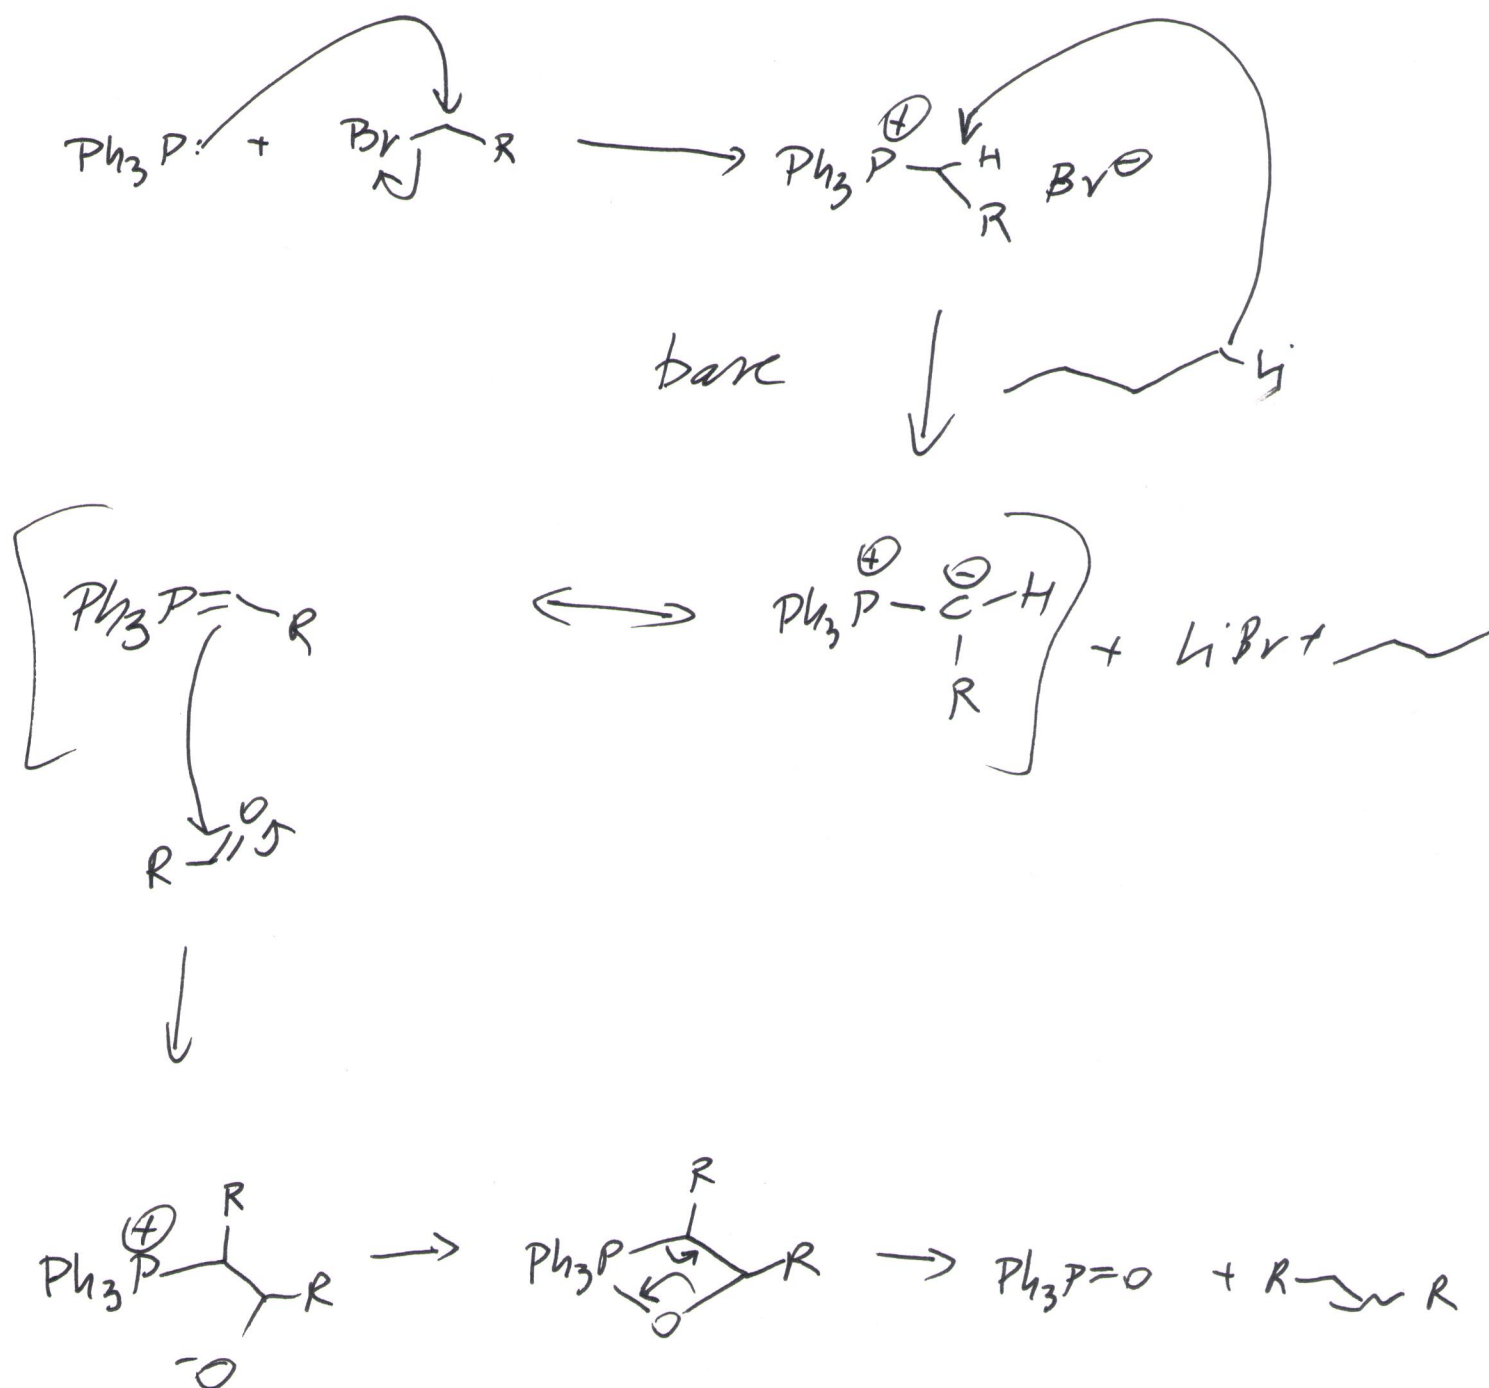 Ph3P: + Br R Ph3P⊕ H R Br⊖
base Li
Ph3P= R Ph3P⊕ – C⊖ – H R + LiBr +
R O
Ph3P⊕ R R ⁻O Ph3P R R O Ph3P=O + R R